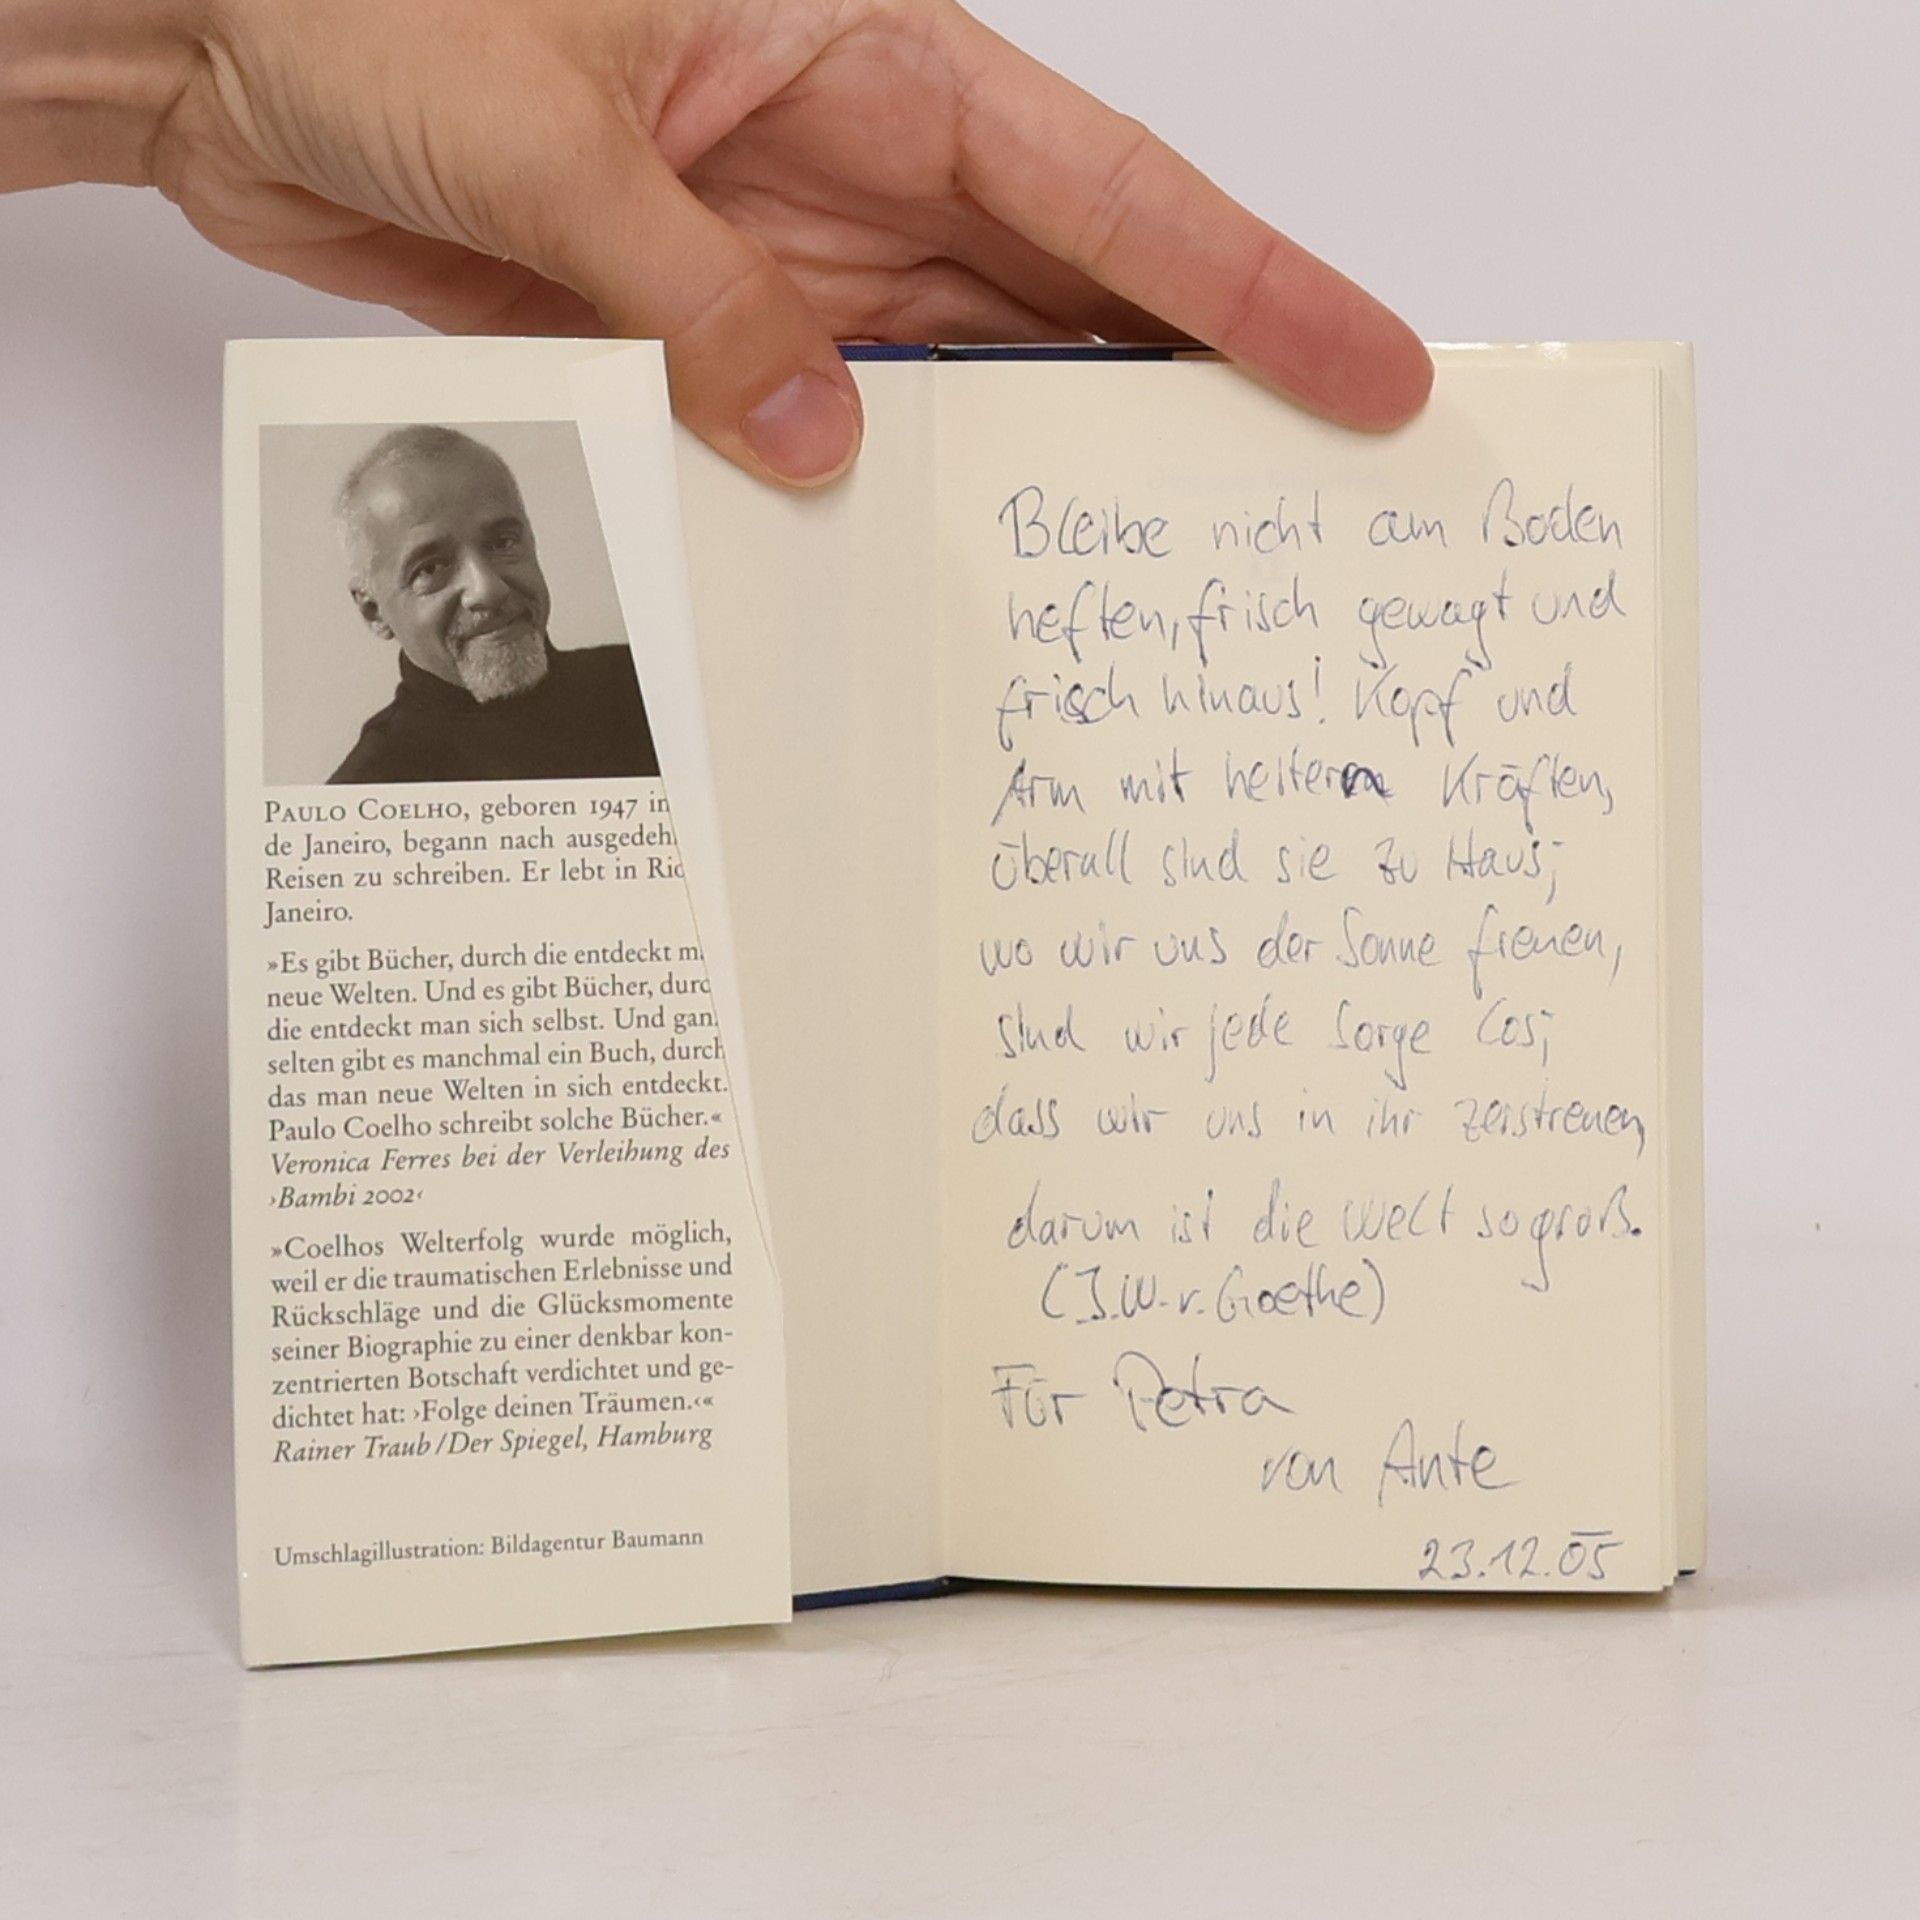 PAULO COELHO, geboren 1947 in
de Janeiro, begann nach ausgedeh
Reisen zu schreiben. Er lebt in Rio
Janeiro.
»Es gibt Bücher, durch die entdeckt m
neue Welten. Und es gibt Bücher, durc
die entdeckt man sich selbst. Und gan
selten gibt es manchmal ein Buch, durch
das man neue Welten in sich entdeckt.
Paulo Coelho schreibt solche Bücher.«
Veronica Ferres bei der Verleihung des
›Bambi 2002‹
»Coelhos Welterfolg wurde möglich,
weil er die traumatischen Erlebnisse und
Rückschläge und die Glücksmomente
seiner Biographie zu einer denkbar kon-
zentrierten Botschaft verdichtet und ge-
dichtet hat: ›Folge deinen Träumen.‹«
Rainer Traub/Der Spiegel, Hamburg
Umschlagillustration: Bildagentur Baumann
Bleibe nicht am Boden
heften, frisch gewagt und
frisch hinaus! Kopf und
Arm mit heitern Kräften,
überall sind sie zu Haus;
wo wir uns der Sonne freuen,
sind wir jede Sorge los;
dass wir uns in ihr zerstreuen,
darum ist die Welt so groß.
(J.W.v.Goethe)
Für Petra
von Ante
23.12.05